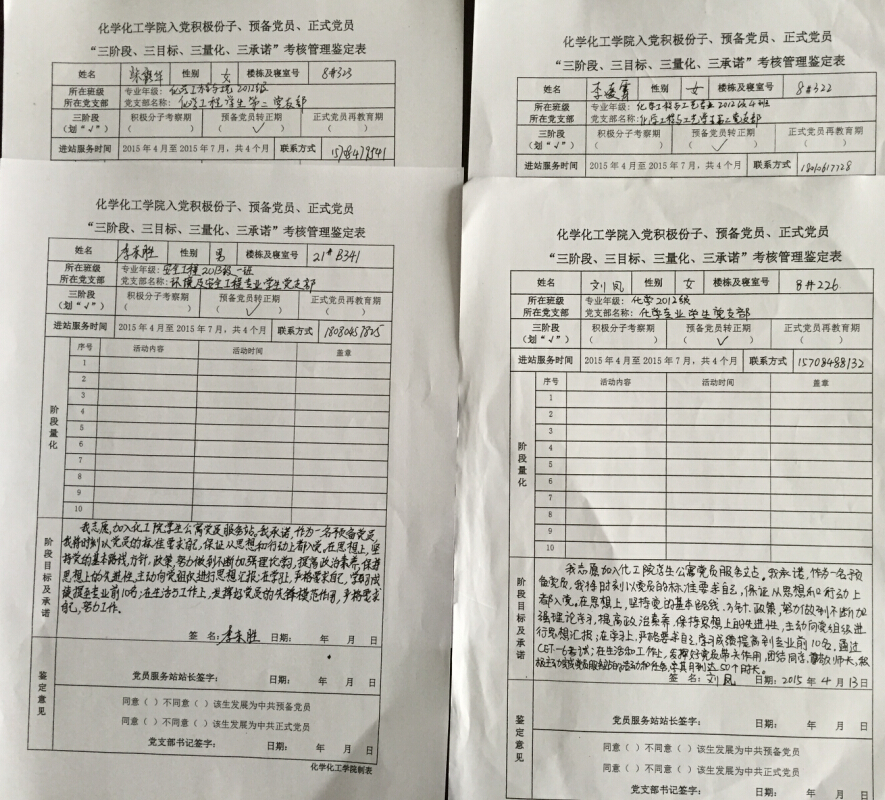 化学化工学院入党积极份子、预备党员、正式党员
“三阶段、三目标、三量化、三承诺”考核管理鉴定表
姓名 性别 女 楼栋及寝室号 8#323
所在班级 专业年级: 2012级
所在党支部 党支部名称: 化学工程学生第二党支部
三阶段 积极分子考察期 预备党员转正期 正式党员再教育期
(划“√”) ( ) ( √ ) ( )
进站服务时间 2015年4月至2015年7月,共4个月 联系方式
化学化工学院入党积极份子、预备党员、正式党员
“三阶段、三目标、三量化、三承诺”考核管理鉴定表
姓名 性别 女 楼栋及寝室号 8#322
所在班级 专业年级: 化学工程与工艺专业2012级4班
所在党支部 党支部名称: 化学工程与工艺学生第二党支部
三阶段 积极分子考察期 预备党员转正期 正式党员再教育期
(划“√”) ( ) ( √ ) ( )
进站服务时间 2015年4月至2015年7月,共4个月 联系方式 18010617728
化学化工学院入党积极份子、预备党员、正式党员
“三阶段、三目标、三量化、三承诺”考核管理鉴定表
姓名 李来胜 性别 男 楼栋及寝室号 21#B341
所在班级 专业年级: 安全工程2013级一班
所在党支部 党支部名称: 环境及安全工程专业学生党支部
三阶段 积极分子考察期 预备党员转正期 正式党员再教育期
(划“√”) ( ) ( √ ) ( )
进站服务时间 2015年4月至2015年7月,共4个月 联系方式
阶段量化
序号 活动内容 活动时间 盖章
1
2
3
4
5
6
7
8
9
10
阶段目标及承诺
我志愿加入化工院学生公寓党员服务站。我承诺,作为一名预备党员,
我将时刻以党员的标准要求自己,保证从思想和行动上都入党。在思想上,坚
持党的基本路线,方针,政策,努力做到不断加强理论学习,提高政治素养,保持
思想上的先进性,主动向党组织进行思想汇报;在学习上,严格要求自己,学习成
绩提至专业前10名;在生活与工作上,发挥好党员的先锋模范作用,严格要求
自己,努力工作。
签名: 李来胜
鉴定意见
党员服务站站长签字: 日期: 年 月 日
同意( )不同意( )该生发展为中共预备党员
同意( )不同意( )该生发展为中共正式党员
党支部书记签字: 日期: 年 月 日
化学化工学院制表
化学化工学院入党积极份子、预备党员、正式党员
“三阶段、三目标、三量化、三承诺”考核管理鉴定表
姓名 刘凤 性别 女 楼栋及寝室号 8#226
所在班级 专业年级: 化学2012级
所在党支部 党支部名称: 化学专业学生党支部
三阶段 积极分子考察期 预备党员转正期 正式党员再教育期
(划“√”) ( ) ( √ ) ( )
进站服务时间 2015年4月至2015年7月,共4个月 联系方式 15708488132
阶段量化
序号 活动内容 活动时间 盖章
1
2
3
4
5
6
7
8
9
10
阶段目标及承诺
我志愿加入化工院学生公寓党员服务站。我承诺,作为一名预
备党员,我将时刻以党员的标准要求自己,保证从思想和行动上
都入党。在思想上,坚持党的基本路线、方针、政策,努力做到不断加
强理论学习,提高政治素养,保持思想上的先进性,主动向党组织进
行思想汇报;在学习上,严格要求自己,学习成绩提高到专业前10名,通过
CET-6考试;在生活和工作上,发挥好党员带头作用,团结同学,尊敬师长,积
极主动完成党员服务站的活动和任务,学期达50个时长。
签名: 刘凤 日期: 2015年4月13日
鉴定意见
党员服务站站长签字: 日期: 年 月 日
同意( )不同意( )该生发展为中共预备党员
同意( )不同意( )该生发展为中共正式党员
党支部书记签字: 日期: 年 月 日